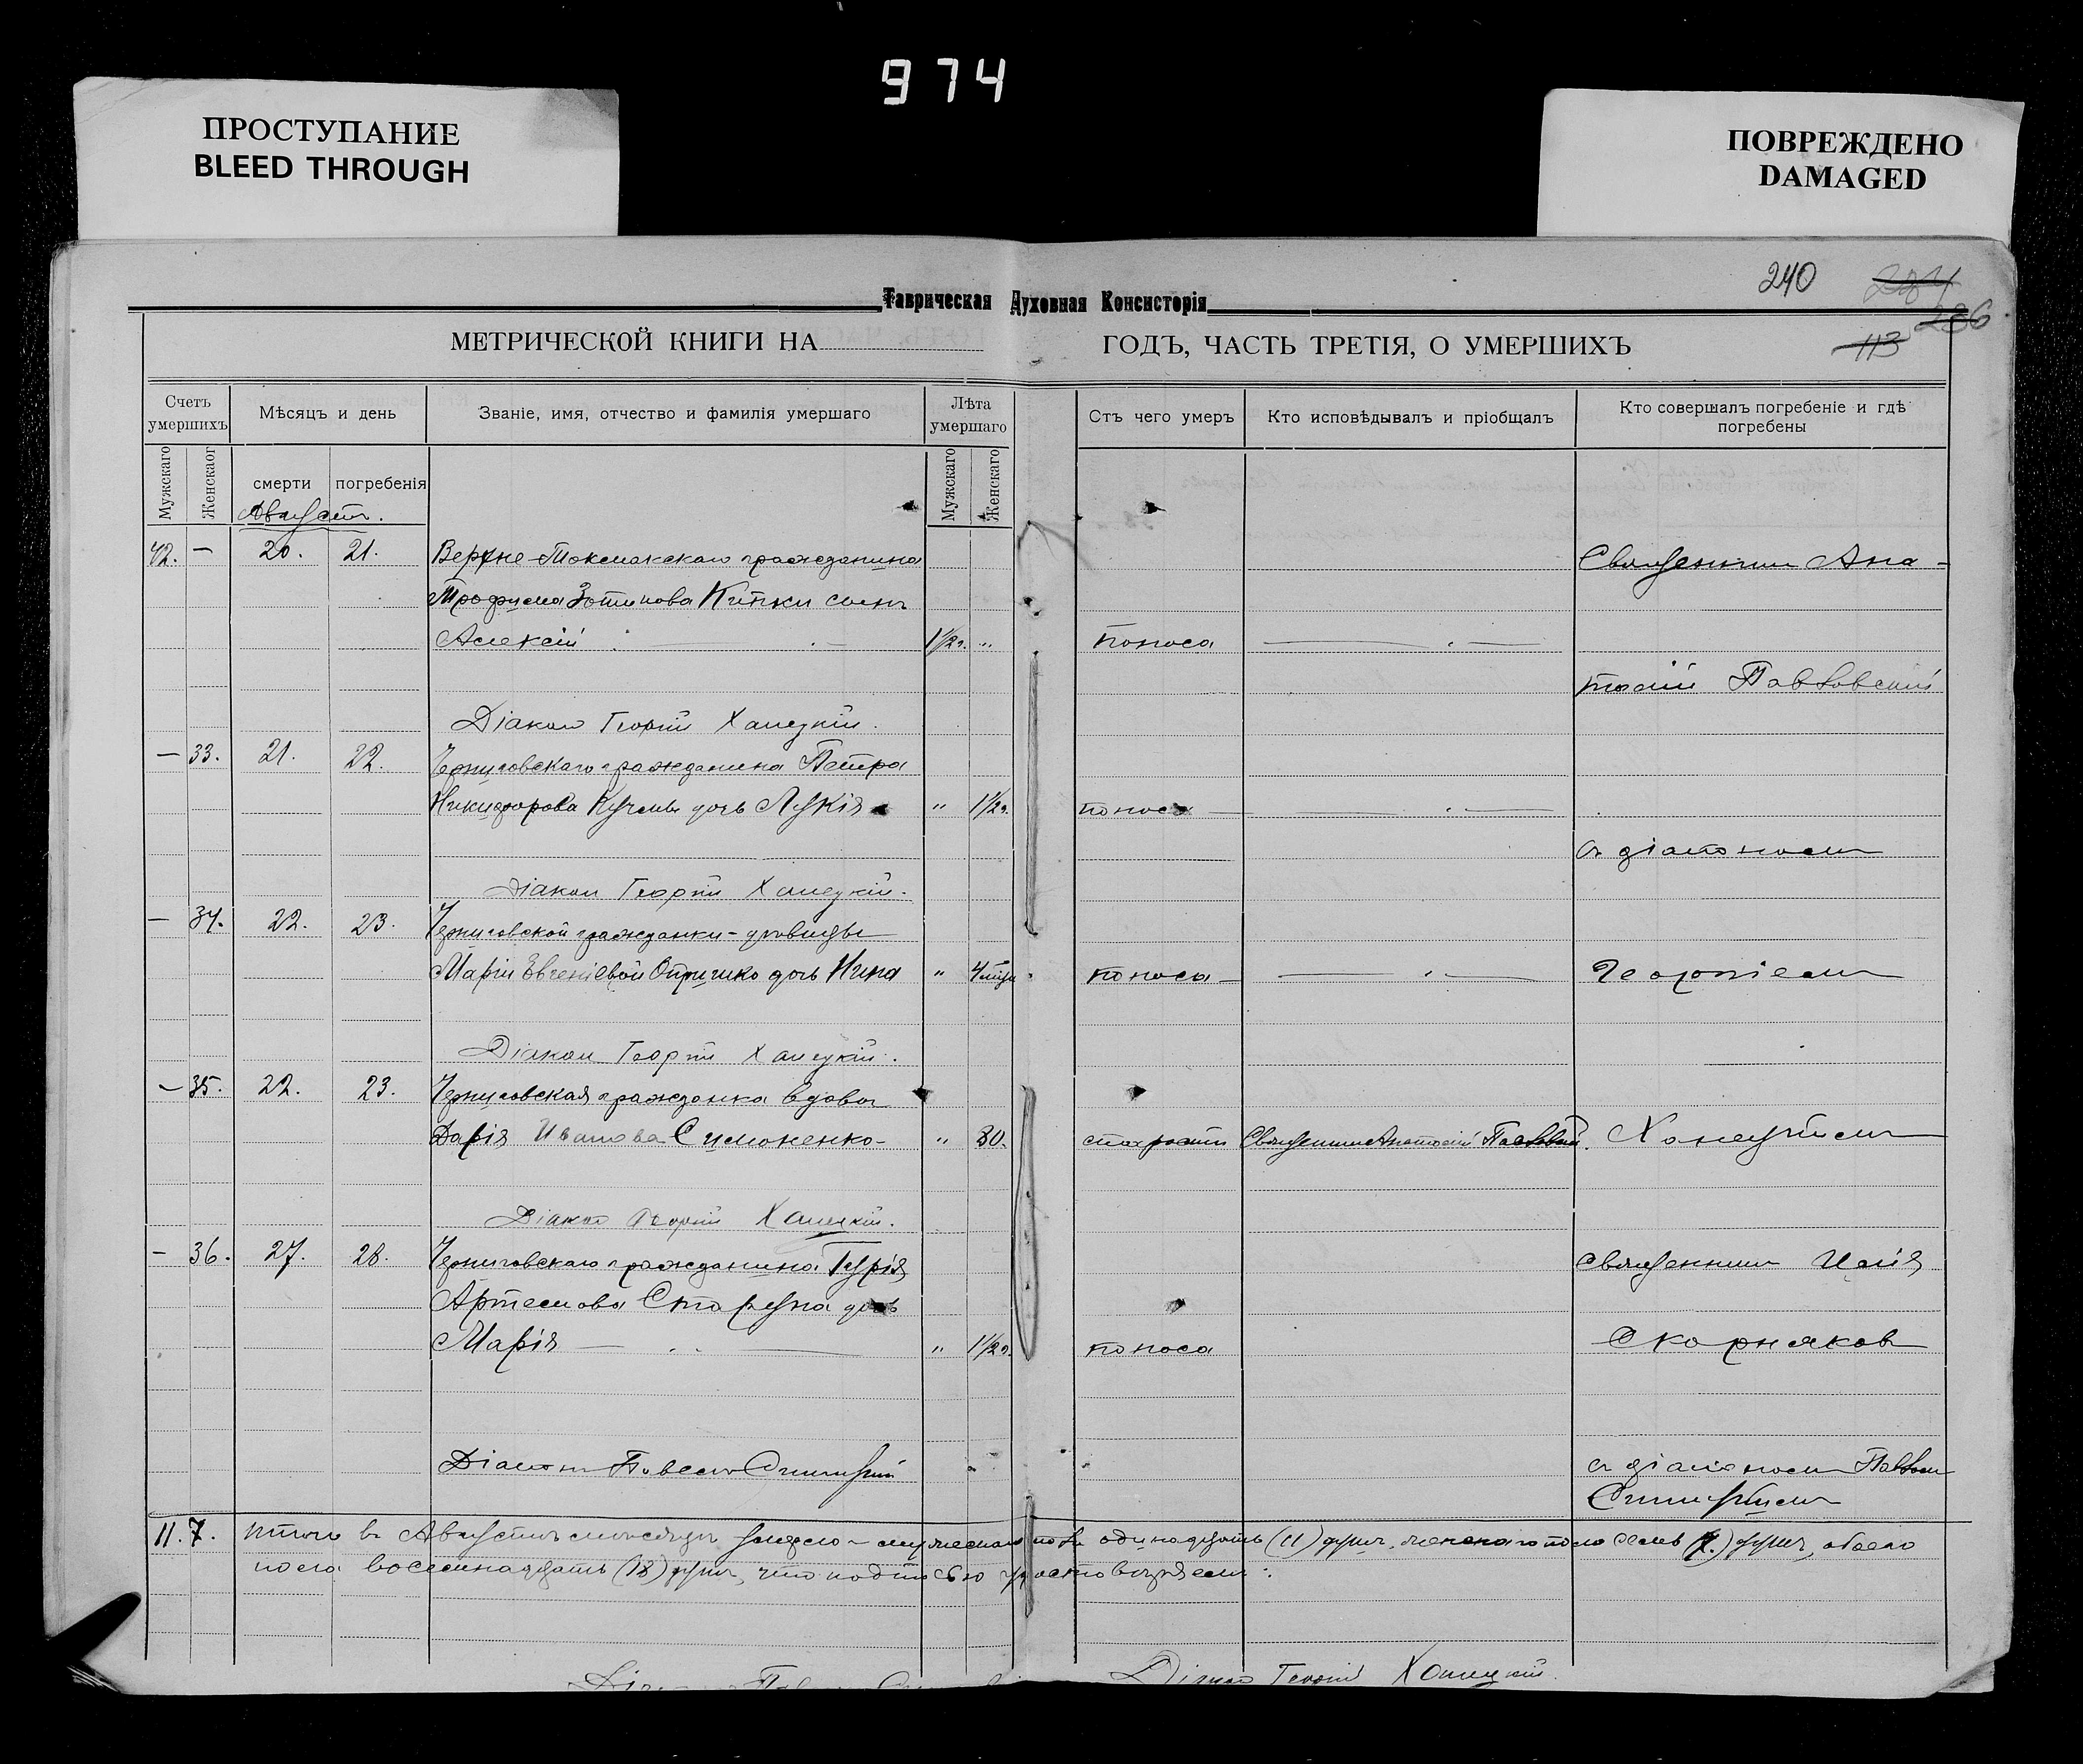 974
ПРОСТУПАНИЕ
BLEED THROUGH
ПОВРЕЖДЕНО
DAMAGED
240
284
286
113
Таврическая Духовная Консисторія
МЕТРИЧЕСКОЙ КНИГИ НА ГОДЪ, ЧАСТЬ ТРЕТІЯ, О УМЕРШИХЪ
Счетъ умершихъ
Мѣсяцъ и день
Званіе, имя, отчество и фамилія умершаго
Лѣта умершаго
Отъ чего умеръ
Кто исповѣдывалъ и пріобщалъ
Кто совершалъ погребеніе и гдѣ погребены
Мужскаго
Женскаог
смерти
погребенія
Мужскаго
Женскаго
Августъ.
42. — 20. 21. Верхне-Токмакскаго гражданина Священникъ Ана-
Трофима Зотикова Китки сынъ
Алексій 1 1/2 г. " поноса —
толій Павловскій
Діаконъ Георгій Ханецкій.
— 33. 21. 22. Черниговскаго гражданина Петра
Никифорова дочь Лукія " 1 1/2 г. поноса —
съ діакономъ
Діаконъ Георгій Ханецкій.
— 34. 22. 23. Черниговской гражданки-дѣвицы
Маріи Евгеніевой дочь Нина " 4 поноса — Георгіемъ
Діаконъ Георгій Ханецкій.
— 35. 22. 23. Черниговская гражданка вдова
Дарія Иванова Симоненко- " 80. старости Священникъ Анатолій Павловскій. Ханецкимъ
Діаконъ Георгій Ханецкій.
— 36. 27. 28. Черниговскаго гражданина Гурія Священникъ Илія
Артемова Старуна дочь
Марія — " 1 1/2 г. поноса Скорняковъ
Діаконъ Павелъ Синицкій съ діакономъ Павломъ
Синицкимъ
11. 7. Итого въ Августѣ мѣсяцѣ умерло - мужескаго пола одинадцать (11) душъ, женскаго пола семь (7.) душъ, обоего
пола восемнадцать (18) душъ, что подписью удостовѣряемъ:
Діаконъ Георгій Ханецкій.